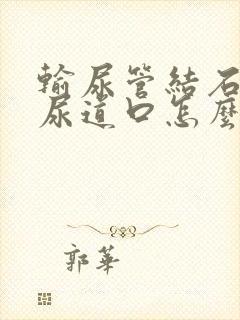 輸尿管結石
尿道口怎麼
郭華